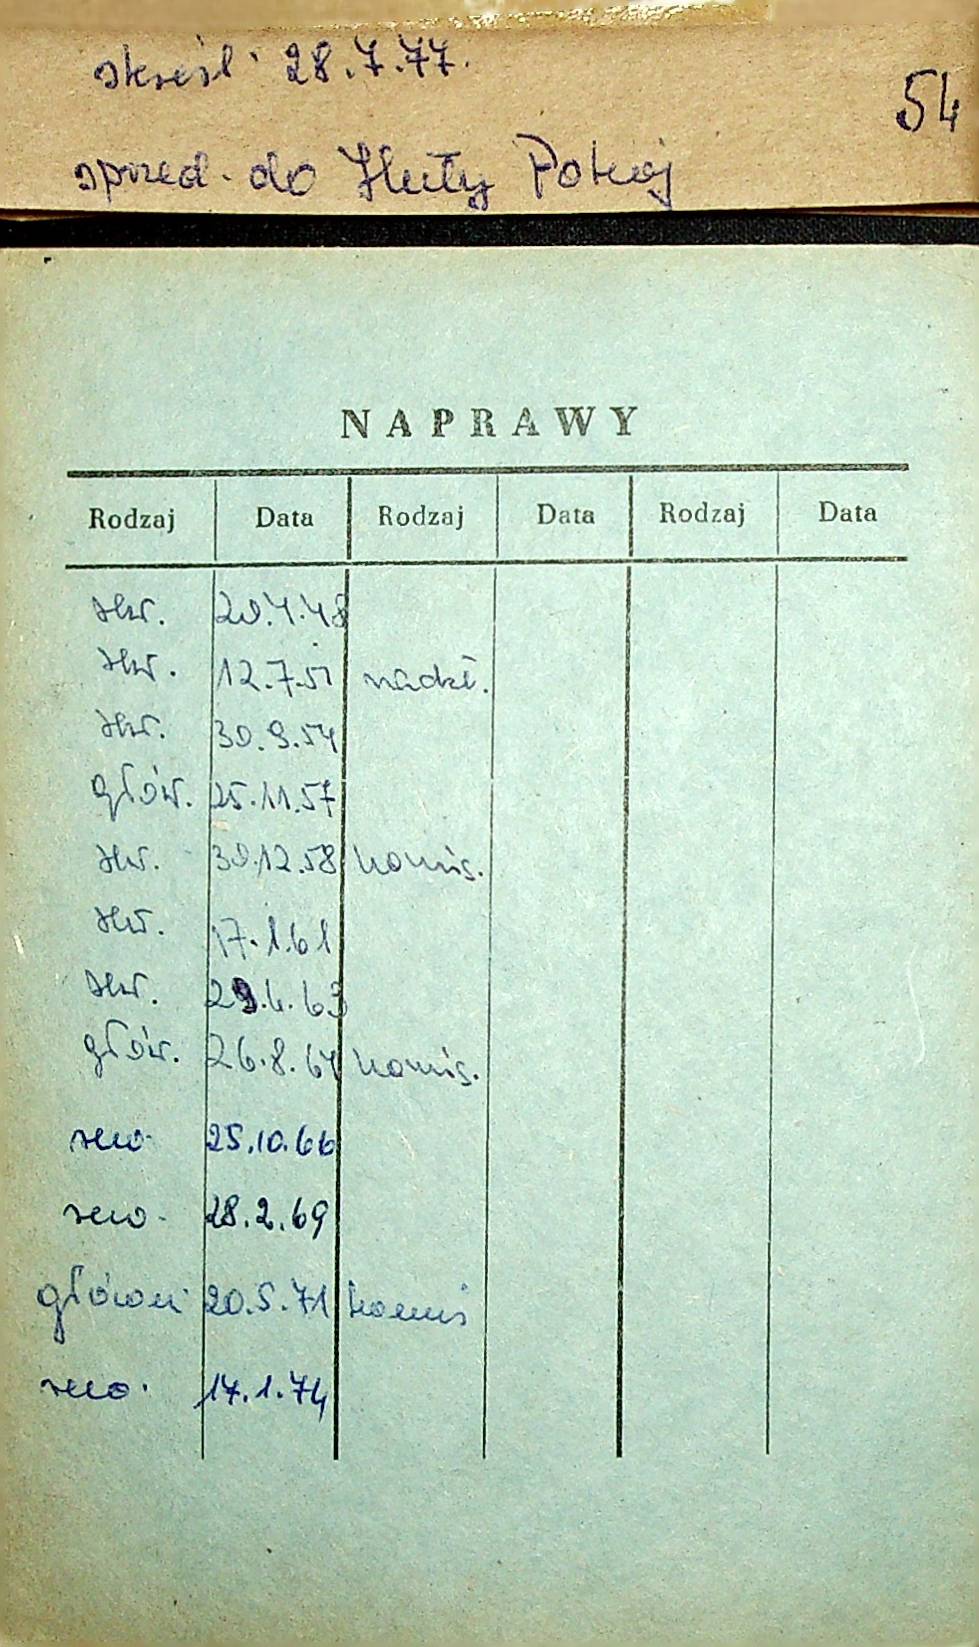 skreśl. 28.7.77.
54
sprzed. do Huty Pokój
NAPRAWY
Rodzaj Data Rodzaj Data Rodzaj Data
śr. 20.4.48
śr. 12.7.51 nadzt.
śr. 30.9.54
głów. 25.11.57
śr. 30.12.58 komis.
śr. 17.1.61
śr. 29.6.63
głów. 26.8.64 komis.
rew. 25.10.66
rew. 28.2.69
główn. 20.5.71 komis
rew. 17.1.74